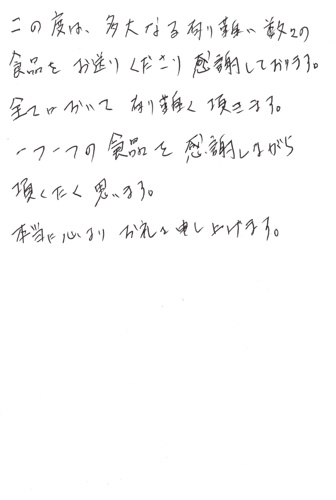 この度は、多大なる有り難い数々の
食品をお送りくださり感謝しております。
全てにおいて有り難く頂きます。
一つ一つの食品を感謝しながら
頂くたく思います。
本当に心よりお礼を申し上げます。